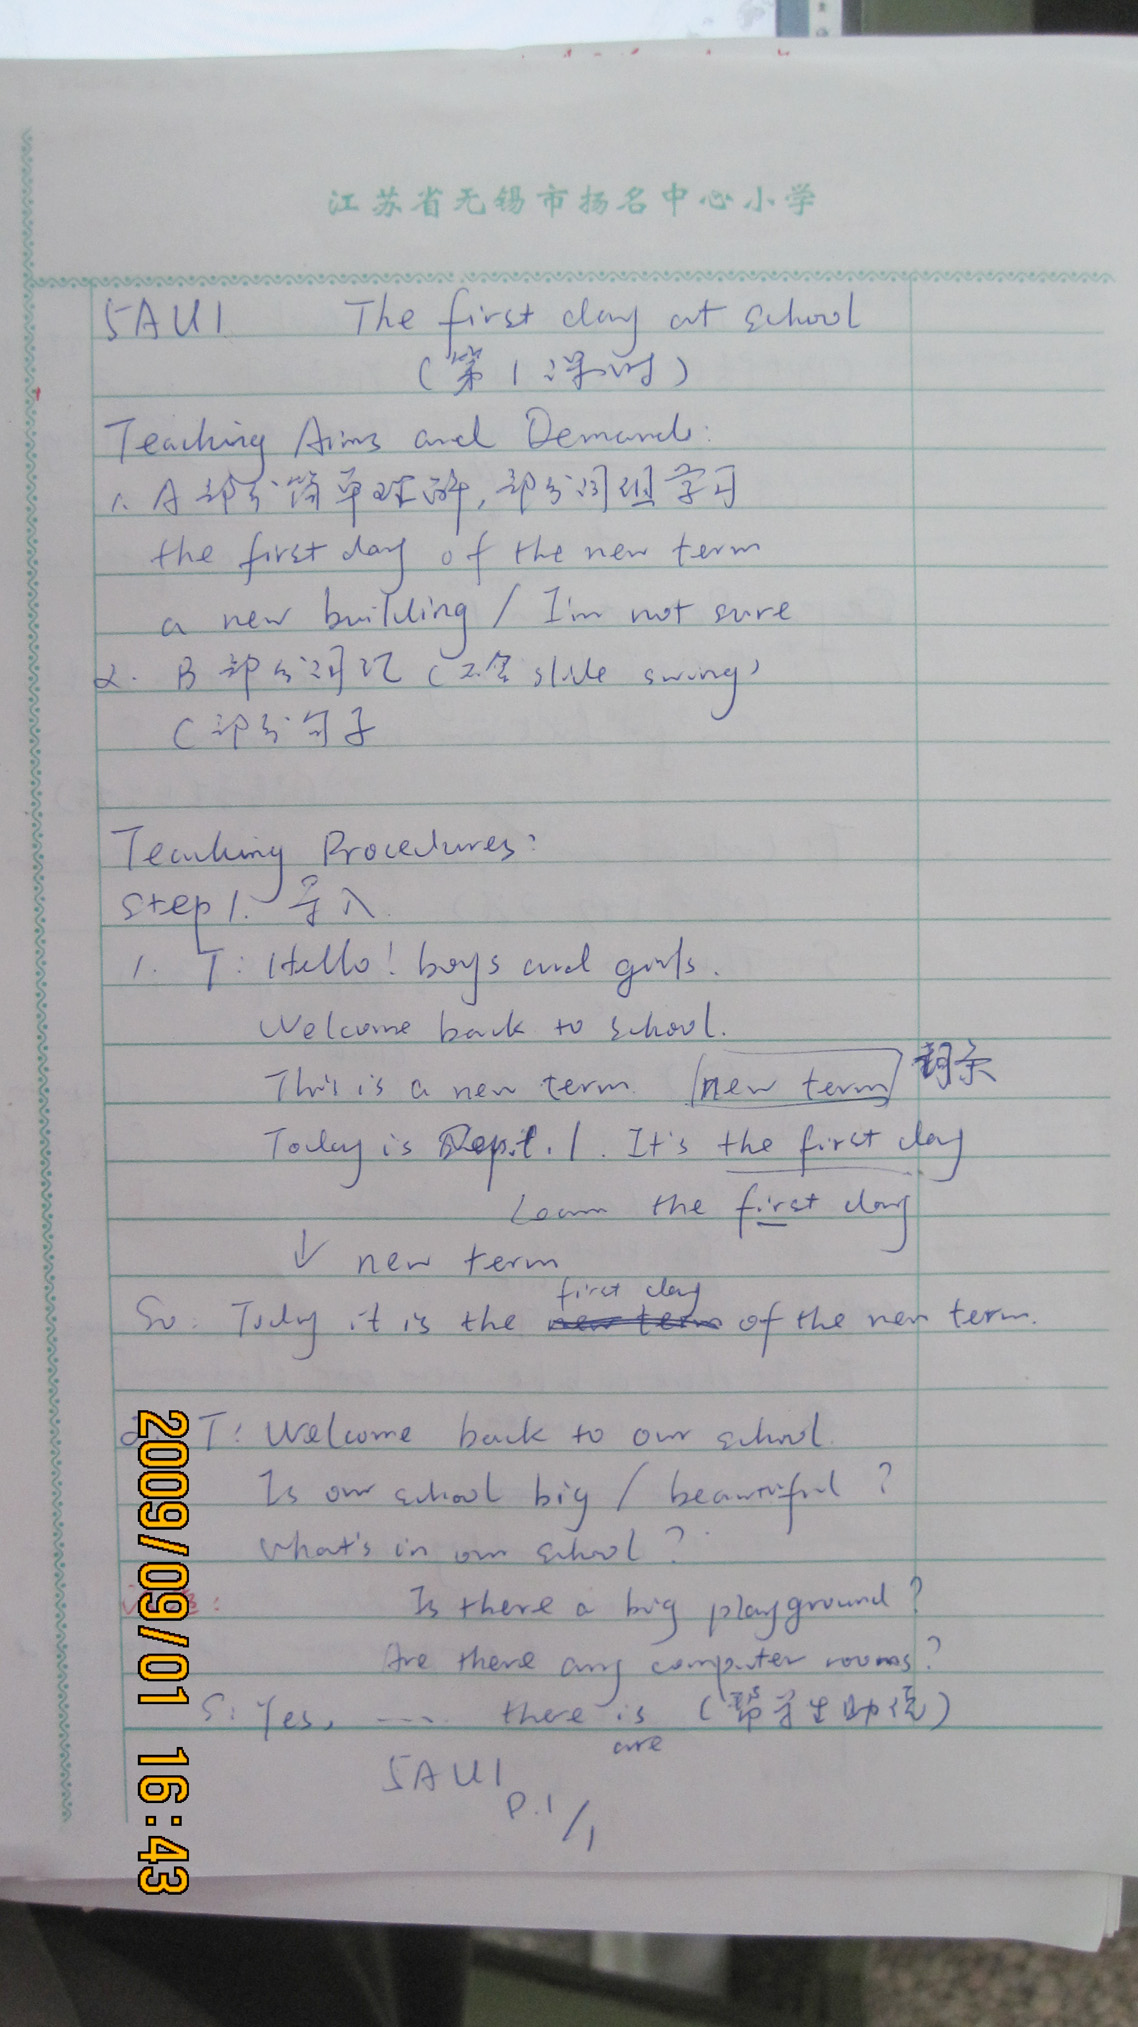 江苏省无锡市扬名中心小学
5AU1 The first day at school
(第1课时)
Teaching Aims and Demands:
1. A部分简单理解,部分词组学习
the first day of the new term
a new building / I'm not sure
2. B部分词汇(不含 slide swing)
C部分句子
Teaching Procedures:
Step 1. 导入
1. T: Hello! boys and girls.
Welcome back to school.
This is a new term. new term 词条
Today is Sept. 1. It's the first day
Learn the first day
↓ new term
first day
So: Today it is the new term of the new term.
2. T: Welcome back to our school.
Is our school big / beautiful?
What's in our school?
Is there a big playground?
Are there any computer rooms?
S: Yes, .... there is (帮学生助说)
are
5AU1
P.1/1
2009/09/01 16:43